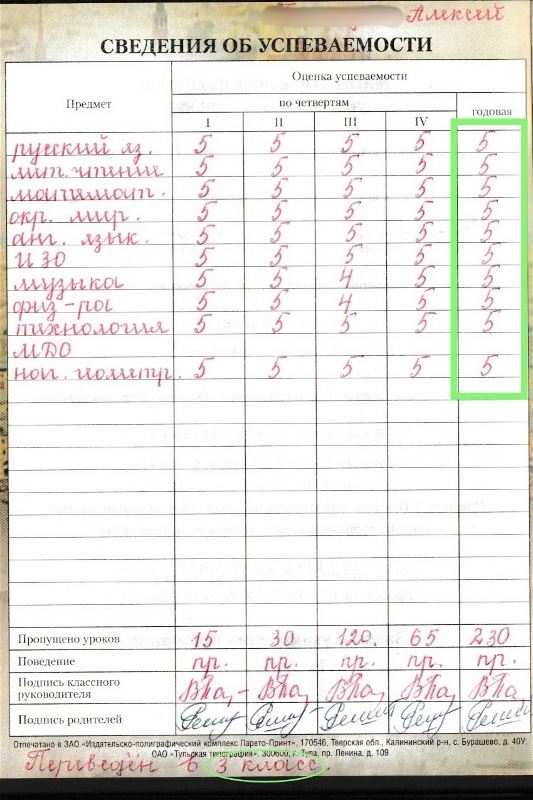 Алексей
СВЕДЕНИЯ ОБ УСПЕВАЕМОСТИ
Предмет Оценка успеваемости
по четвертям годовая
I II III IV
русский яз. 5 5 5 5 5
лит. чтение 5 5 5 5 5
математ. 5 5 5 5 5
окр. мир. 5 5 5 5 5
анг. язык. 5 5 5 5 5
ИЗО 5 5 5 5 5
музыка 5 5 4 5 5
физ-ра 5 5 4 5 5
технология 5 5 5 5 5
МДО
5 5 5 5 5
Пропущено уроков 15 30 120. 65 230
Поведение пр. пр. пр. пр. пр.
Подпись классного
руководителя
Подпись родителей
Отпечатано в ЗАО «Издательско-полиграфический комплекс Парето-Принт», 170546, Тверская обл., Калининский р-н, с. Бурашево, д. 40V.
ОАО "Тульская типография". 300600, г. Тула, пр. Ленина, д. 109
Переведён в 3 класс.